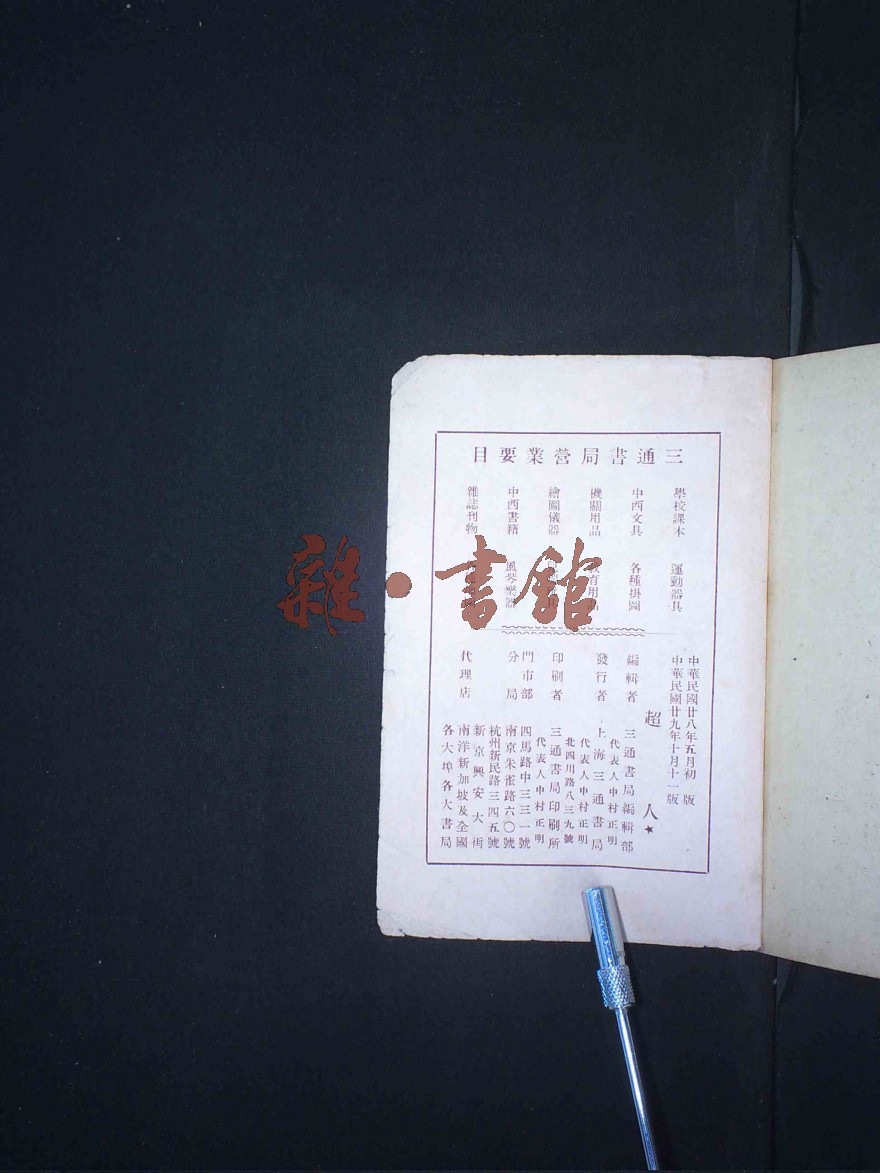 三通書局營業要目
學校課本 運動器具
中西文具 各種掛圖
機關用品 教育用品
繪圖儀器
中西書籍 風琴樂器
雜誌刊物
中華民國廿八年五月初版
中華民國廿九年十月十一版
超人★
編輯者 三通書局編輯部
代表人中村正明
發行者 上海三通書局
代表人中村正明
北四川路八三九號
印刷者 三通書局印刷所
代表人中村正明
門市部 四馬路中三三一號
分局 南京朱雀路六〇號
杭州新民路三四五號
新京興安大街
代理店 南洋新加坡及全國
各大埠各大書局
雜·書館